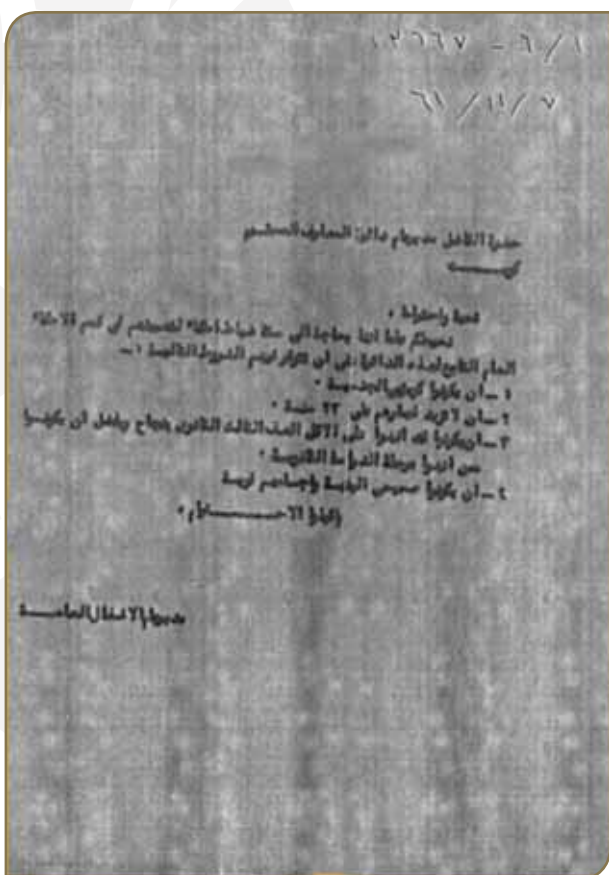 ٦/١ -
٦١/١١/٧
حضرة الفاضل مدير عام دائرة المعارف المحترم
تحية واحتراما ،
نحيطكم علما اننا بحاجة الى ستة
العام التابع لهذه الدائرة ، على ان تتوفر فيهم الشروط التالية : ـ
١ ـ ان يكونوا كويتيي الجنسية ٠
٢ ـ ان لا تزيد اعمارهم على ٢٣ سنة ٠
٣ ـ ان يكونوا قد اتموا على الاقل الصف الثالث الثانوي بنجاح ويفضل ان يكونوا
ممن اتموا مرحلة الدراسة الثانوية ٠
٤ ـ ان يكونوا صحيحي البنية واجسامهم قوية
الاحترام ،
مدير عام الاشغال العامة